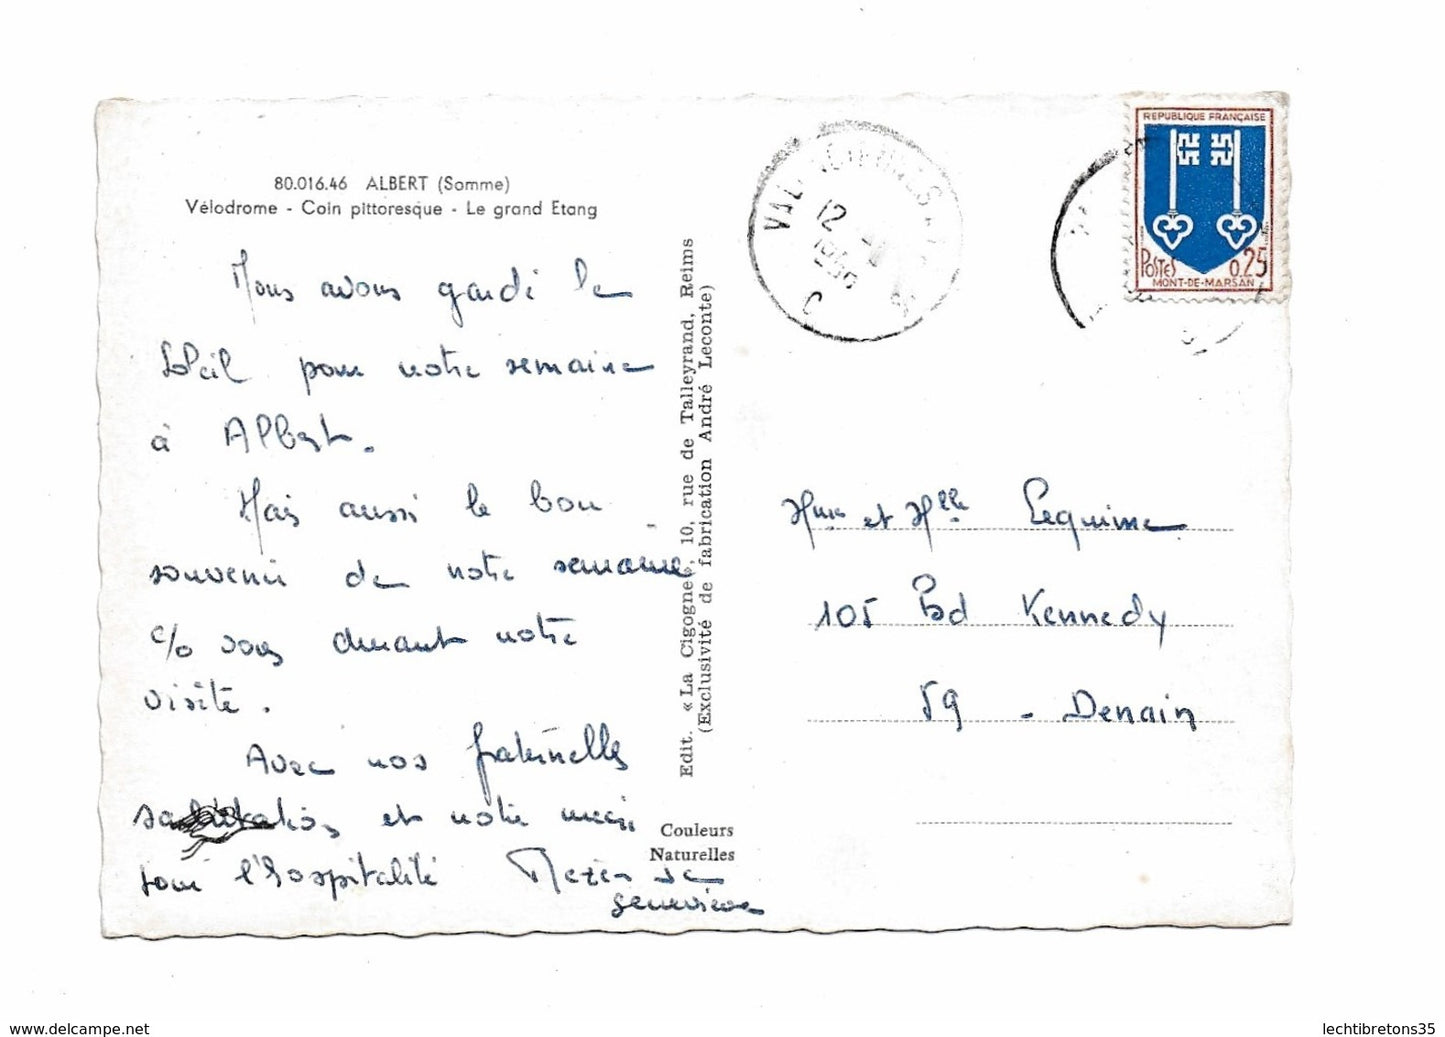 80.016.46 ALBERT (Somme)
Vélodrome - Coin pittoresque - Le grand Etang
Nous avons gardé le
soleil pour notre semaine
à Albert.
Mais aussi le bon
souvenir de notre semaine
c/o vous durant notre
visite.
Avec nos fraternelles
et notre merci
pour l'hospitalité
Geneviève
Edit. «La Cigogne», 10, rue de Talleyrand, Reims
(Exclusivité de fabrication André Leconte)
Couleurs
Naturelles
VALENCIENNES
12
C
REPUBLIQUE FRANÇAISE
POSTES 0,25
MONT-DE-MARSAN
Mme et Mlle Lequime
105 Bd Kennedy
59 - Denain
www.delcampe.net
lechtibretons35